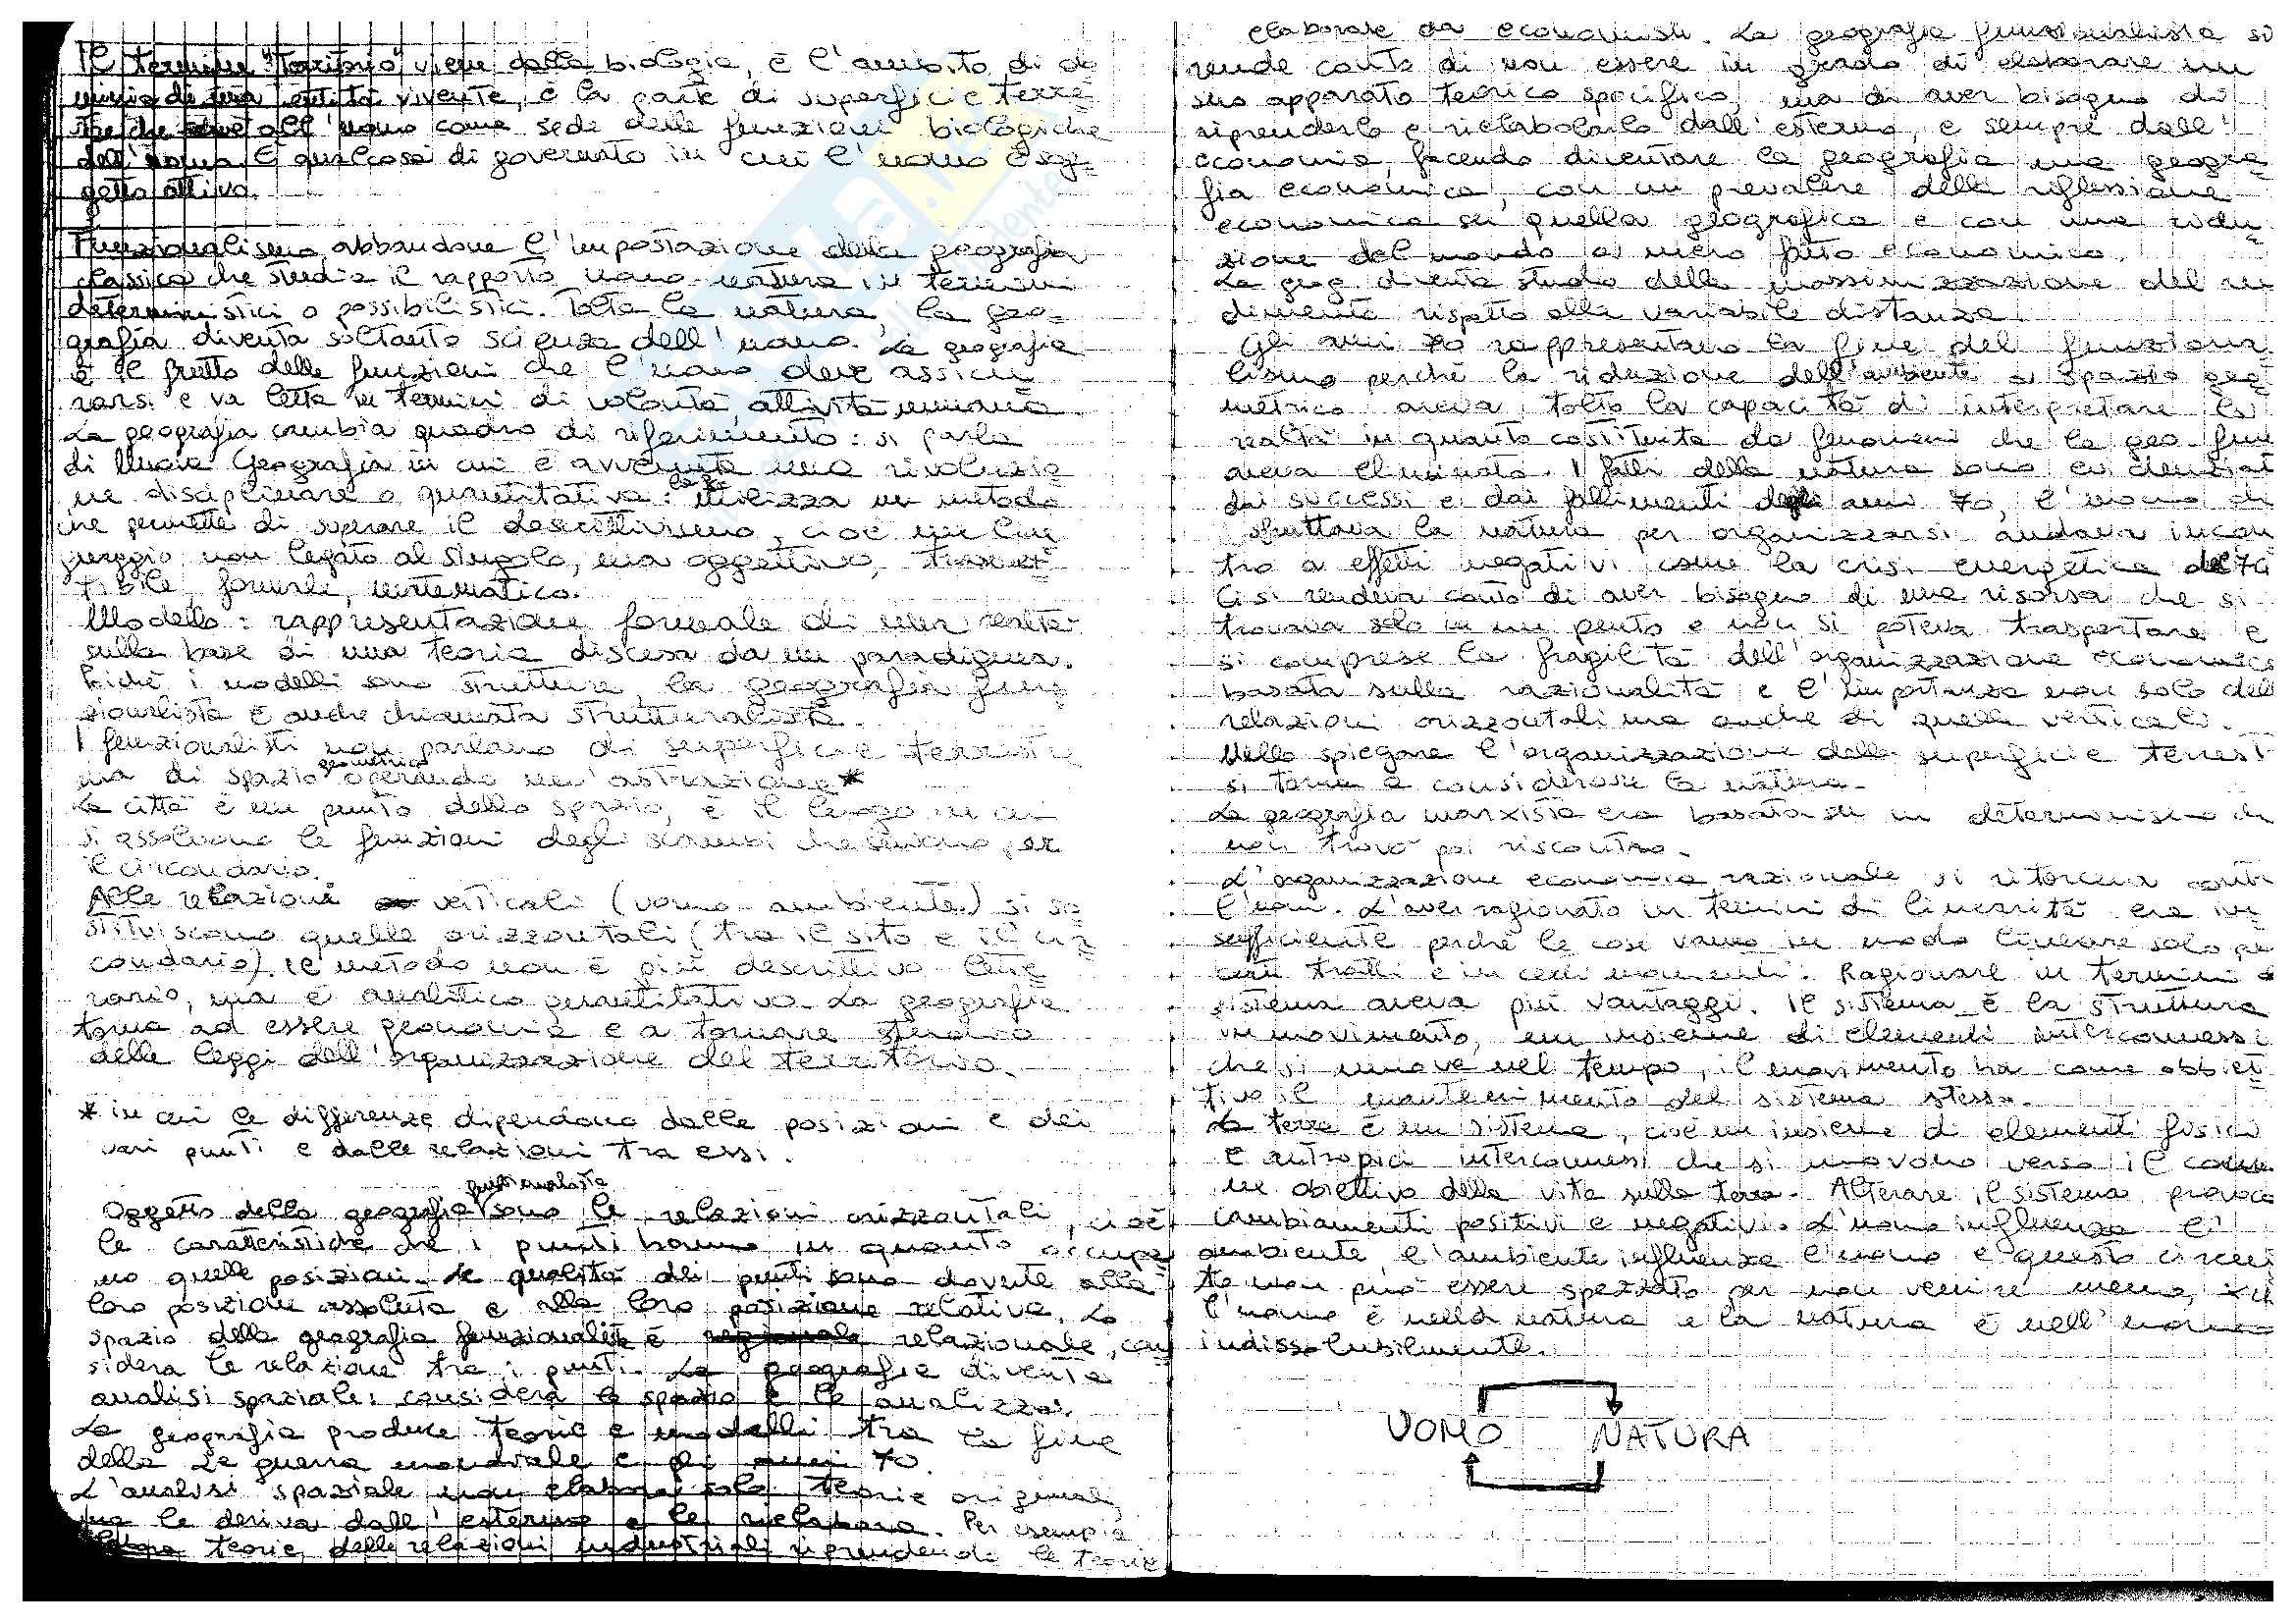 Il termine "Territorio" viene dalla biologia, è l'ambito di do
minio di una entità vivente, è la parte di superficie terre-
stre che serve all'uomo come sede delle funzioni biologiche
dell'uomo. È qualcosa di governato in cui l'uomo è sog-
getto attivo.
Funzionalismo abbandona l'impostazione della geografia
classica che studia il rapporto uomo-natura in termini
deterministici o possibilistici. Tolta la natura, la geo-
grafia diventa soltanto scienza dell'uomo. La geografia
è il frutto delle funzioni che l'uomo deve assicu
rarsi e va letta in termini di volontà, attività umana.
La geografia cambia quadro di riferimento: si parla
di Nuova Geografia in cui è avvenuta una rivoluzio
ne disciplinare o quantitativa: utilizza un metodo
che permette di superare il descrittivismo, cioè un lin
guaggio non legato al singolo, ma oggettivo, trasmet-
tibile, formale, matematico.
Modello: rappresentazione formale di una realtà
sulla base di una teoria discesa da un paradigma.
Poiché i modelli sono strutture, la geografia fun
zionalista è anche chiamata strutturalista.
I funzionalisti non parlano di superficie terrestre
ma di spazio geometrico operando un'astrazione*
La città è un punto dello spazio, è il luogo in cui
si assolvono le funzioni degli scambi che servono per
il circondario.
Alle relazioni verticali (uomo-ambiente) si so
stituiscono quelle orizzontali (tra il sito e il cir
condario). Il metodo non è più descrittivo lette
rario, ma è analitico quantitativo. La geografia
torna ad essere geonomia e a tornare studio
delle leggi dell'organizzazione del territorio.
* in cui le differenze dipendono dalle posizioni e dei
vari punti e dalle relazioni tra essi.
Oggetto della geografia funzionalista sono le relazioni orizzontali, cioè
le caratteristiche che i punti hanno in quanto occupa
no quelle posizioni. Le qualità dei punti sono dovute alla
loro posizione assoluta e alla loro posizione relativa. Lo
spazio della geografia funzionalista è relazionale, con
sidera le relazione tra i punti. La geografia diventa
analisi spaziale: considera lo spazio e lo analizza.
La geografia produce teorie e modelli tra la fine
della 2a guerra mondiale e gli anni 70.
L'analisi spaziale non elabora solo teorie originali,
ma le deriva dall'esterno e le rielabora. Per esempio
teorie delle relazioni industriali riprendendo le teorie
elaborate da economisti. La geografia funzionalista si
rende conto di non essere in grado di elaborare un
suo apparato teorico specifico, ma di aver bisogno di
riprenderlo e rielaborarlo dall'esterno, e sempre dall'
economia, facendo diventare la geografia una geogra-
fia economica, con un prevalere della riflessione
economica su quella geografica e con una ridu-
zione del mondo a mero fatto economico.
La geog. diventa studio della massimizzazione del ren
dimento rispetto alla variabile distanza.
Gli anni 70 rappresentano la fine del funziona
lismo perché la riduzione dell'ambiente a spazio geo
metrico aveva tolto la capacità di interpretare la
realtà in quanto costituita da fenomeni che la geo. fun
aveva eliminato. I fatti della natura sono evidenziat
dai successi e dai fallimenti degli anni 70, l'uomo
sfruttava la natura per organizzarsi andava incon
tro a effetti negativi come la crisi energetica del 7
Ci si rendeva conto di aver bisogno di una risorsa che si
trovava solo in un punto e non si poteva trasportare e
si comprese la fragilità dell'organizzazione economica
basata sulla razionalità e l'importanza non solo dell
relazioni orizzontali ma anche di quelle verticali.
Nello spiegare l'organizzazione della superficie terrest
si torna a considerare la natura.
La geografia marxista era basata su un determinismo ch
non trovò poi riscontro.
L'organizzazione economica razionale si ritorceva contr
l'uom. L'aver ragionato in termini di linearità era in
sufficiente perché le cose vanno in modo lineare solo pe
certi tratti e in certi momenti. Ragionare in termini
sistema aveva più vantaggi. Il sistema è la struttura
in movimento, un insieme di elementi interconnessi
che si muove nel tempo, il movimento ha come obbiet-
tivo il mantenimento del sistema stesso.
La terra è un sistema, cioè un insieme di elementi fisici
e antropici interconnessi che si muovono verso il comu
ne obiettivo della vita sulla terra. Alterare il sistema provoca
cambiamenti positivi e negativi. L'uomo influenza l'
ambiente e l'ambiente influenza l'uomo e questo circui
to non può essere spezzato per non venire meno,
l'uomo è nella natura e la natura è nell'uomo
indissolubilmente.
UOMO NATURA